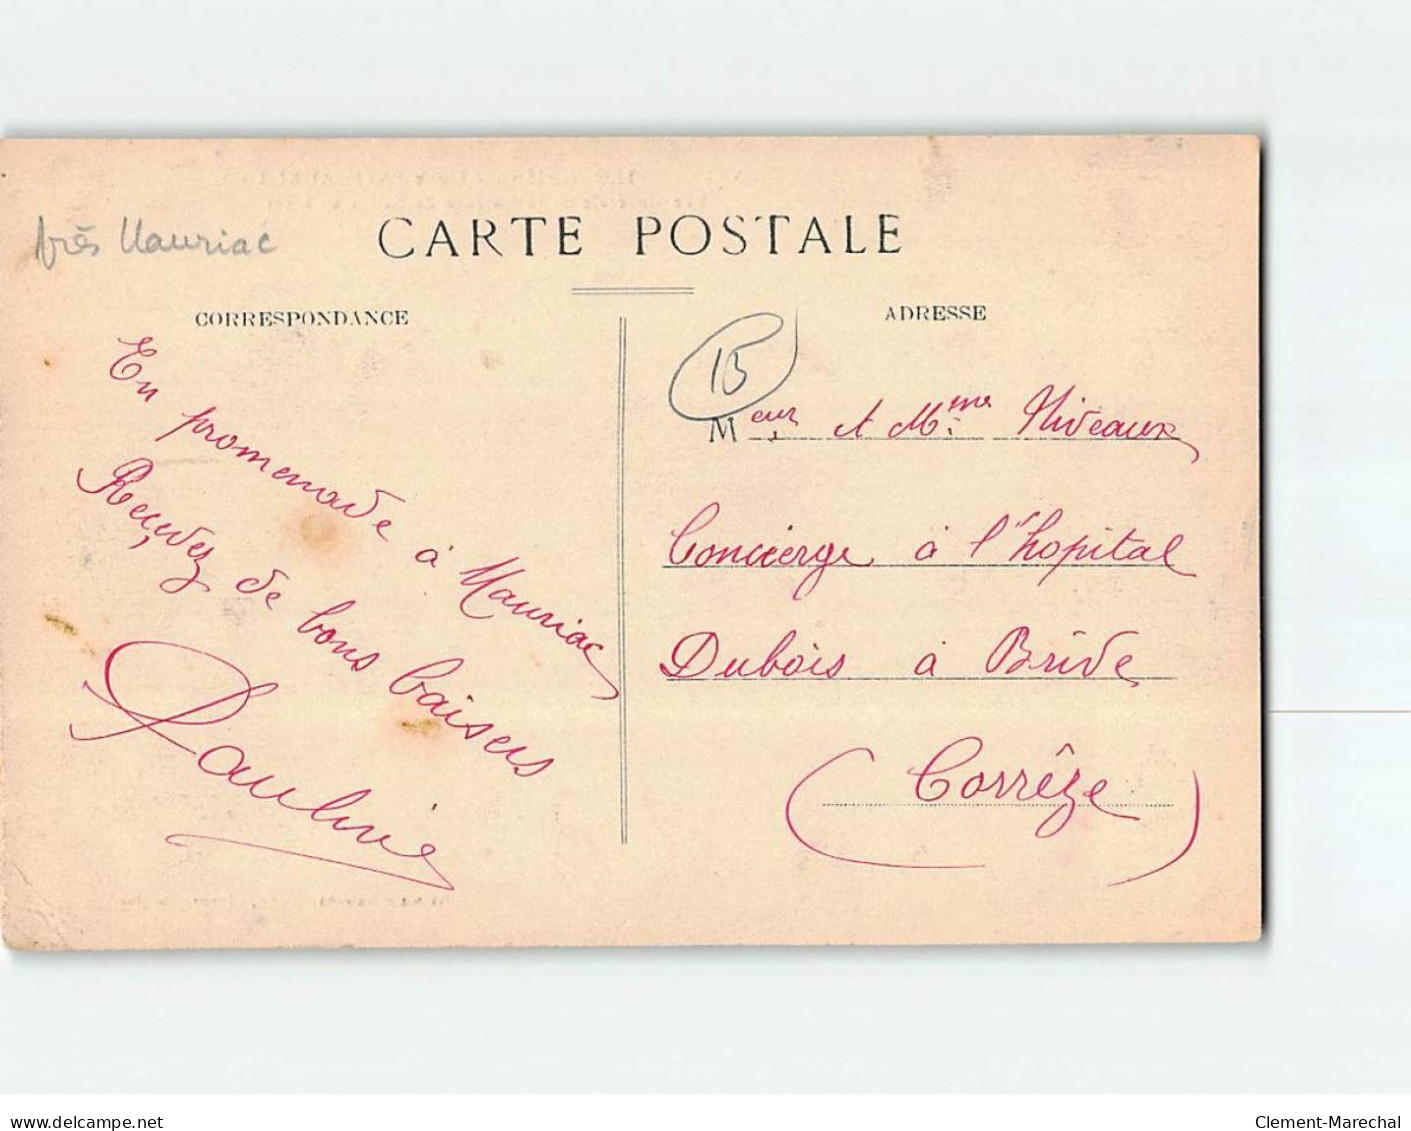 près Mauriac
CARTE POSTALE
CORRESPONDANCE
ADRESSE
15
En promenade à Mauriac
Reçevez de bons baisers
Pauline
Meur et Mme Niveaux
Concierge à l'hopital
Dubois à Brive
(Corrèze)
delcampe.net
Clement-Marechal